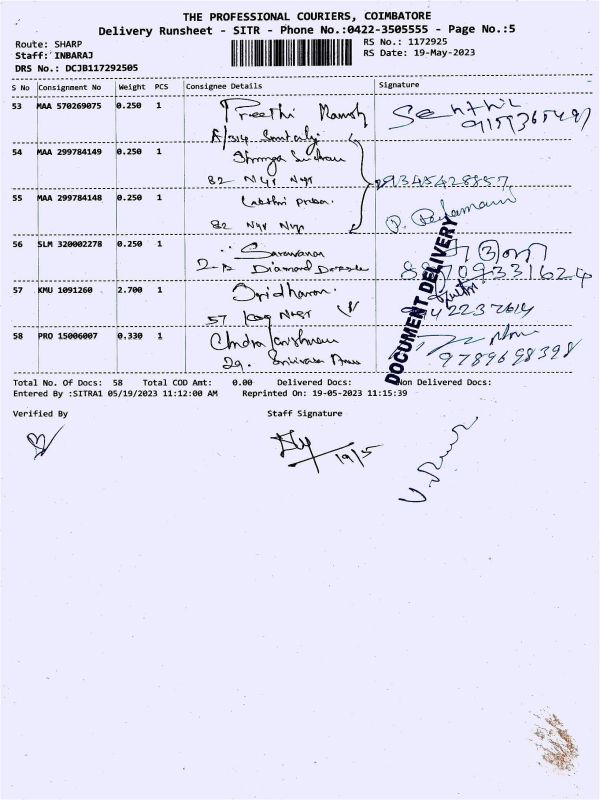 THE PROFESSIONAL COURIERS, COIMBATORE
Delivery Runsheet - SITR - Phone No.:0422-3505555 - Page No.:5
Route: SHARP RS No.: 1172925
Staff: INBARAJ RS Date: 19-May-2023
DRS No.: DCJB117292505
S No Consignment No Weight PCS Consignee Details Signature
53 MAA 570269075 0.250 1 Preethi Senthil
A/314
54 MAA 299784149 0.250 1
82 N4r N4r 9345428857
55 MAA 299784148 0.250 1 Lakshmi
82 N4r N4r P.
56 SLM 320002278 0.250 1 Saravanan
Diamond
57 KMU 1091260 2.700 1 Sridharan
57
58 PRO 15006007 0.330 1 Chndra
29. 9789698398
DOCUMENT DELIVERY
Total No. Of Docs: 58 Total COD Amt: 0.00 Delivered Docs: Non Delivered Docs:
Entered By :SITRA1 05/19/2023 11:12:00 AM Reprinted On: 19-05-2023 11:15:39
Verified By Staff Signature
19/5